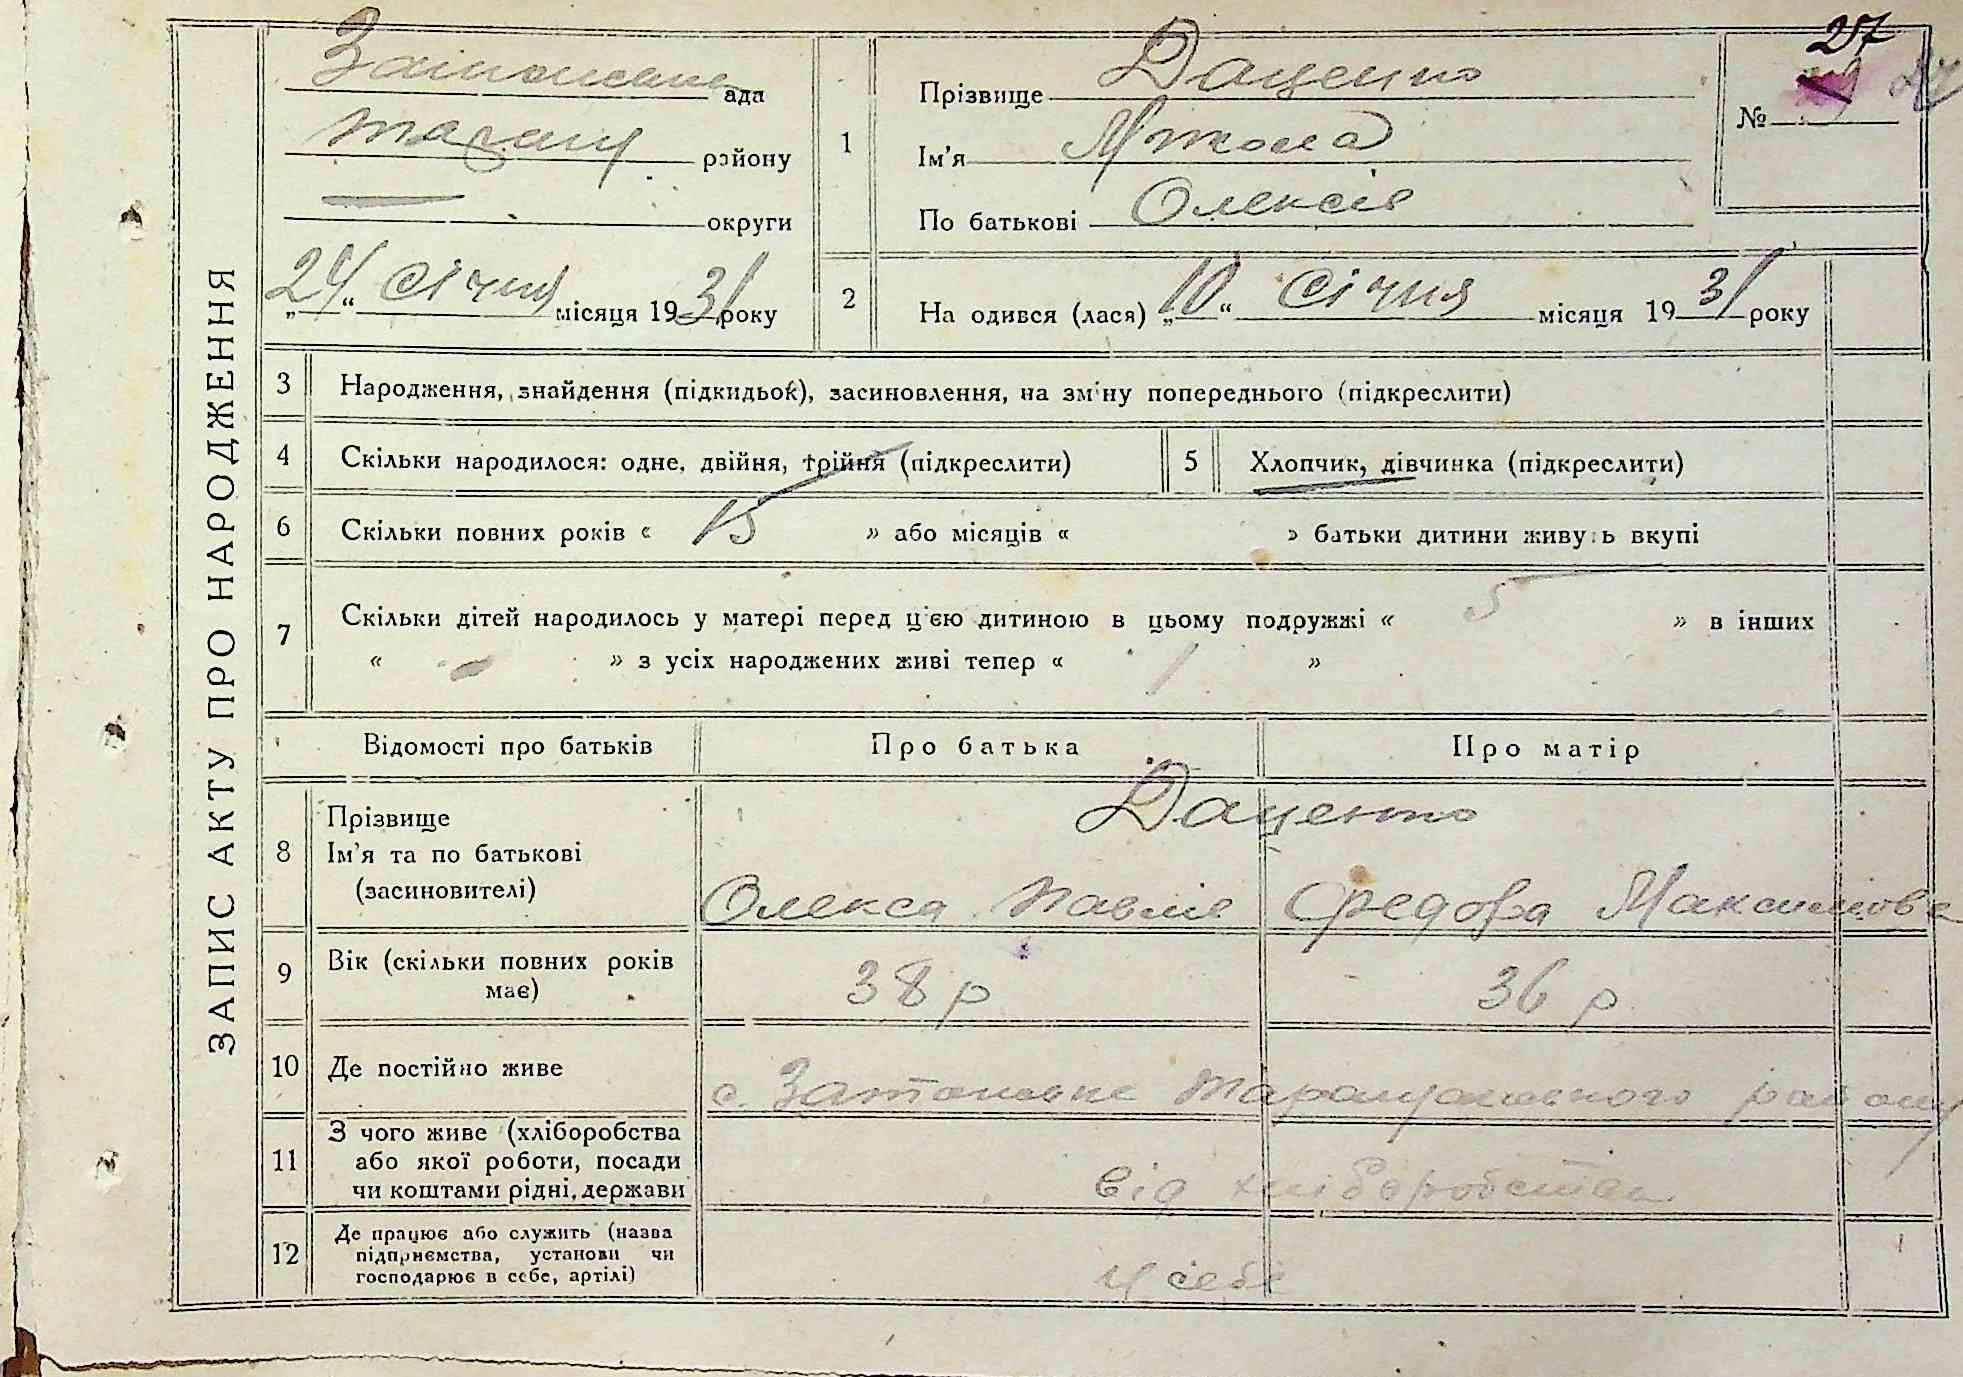 ЗАПИС АКТУ ПРО НАРОДЖЕННЯ
ада
району
округи
„24“ Січня місяця 1931 року
1
Прізвище Даценко
Ім'я Микола
По батькові Олексів
№ 27
27
2
На одився (лася) „10“ Січня місяця 1931 року
3 Народження, знайдення (підкидьок), засиновлення, на зміну попереднього (підкреслити)
4 Скільки народилося: одне, двійня, трійня (підкреслити)
5 Хлопчик, дівчинка (підкреслити)
6 Скільки повних років « 15 » або місяців « » батьки дитини живуть вкупі
7 Скільки дітей народилось у матері перед цією дитиною в цьому подружжі « 5 » в інших
« - » з усіх народжених живі тепер « 1 »
Відомості про батьків
Про батька
Про матір
8
Прізвище
Ім'я та по батькові
(засиновителі)
Даценко
Олекса Павлів
Федора Максимовa
9
Вік (скільки повних років
має)
38 р
36 р
10 Де постійно живе
с. району
11
З чого живе (хліборобства
або якої роботи, посади
чи коштами рідні, держави
від хліборобства
12
Де працює або служить (назва
підприємства, установи чи
господарює в себе, артілі)
у себе